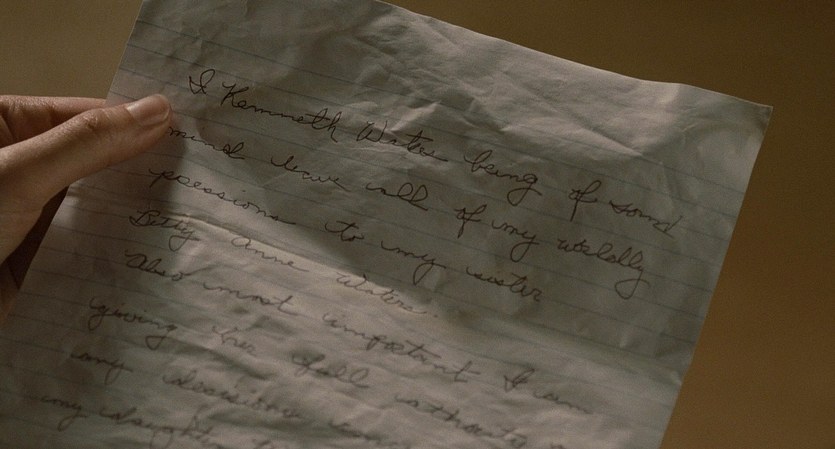 I Kenneth Waters being of sound
mind leave all of my worldly
possessions to my sister
Betty Anne Waters.
Also most important I am
giving her full authority
any decisions
my daughter